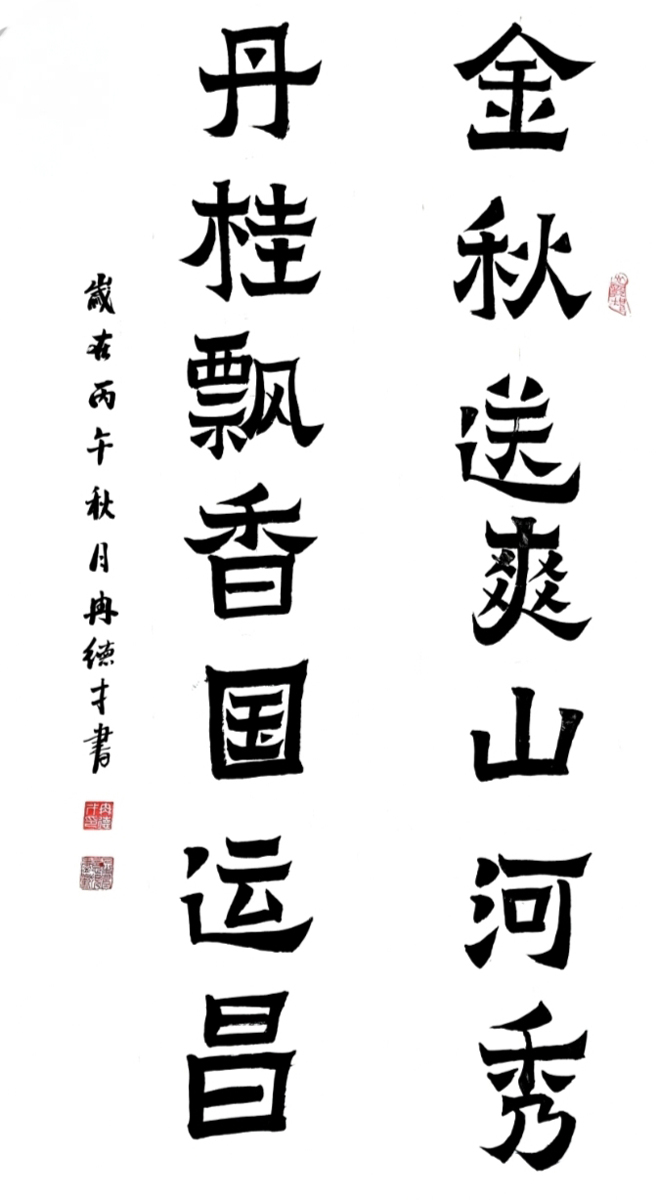 金秋送爽山河秀
丹桂飘香国运昌
歲在丙午秋月冉德才書